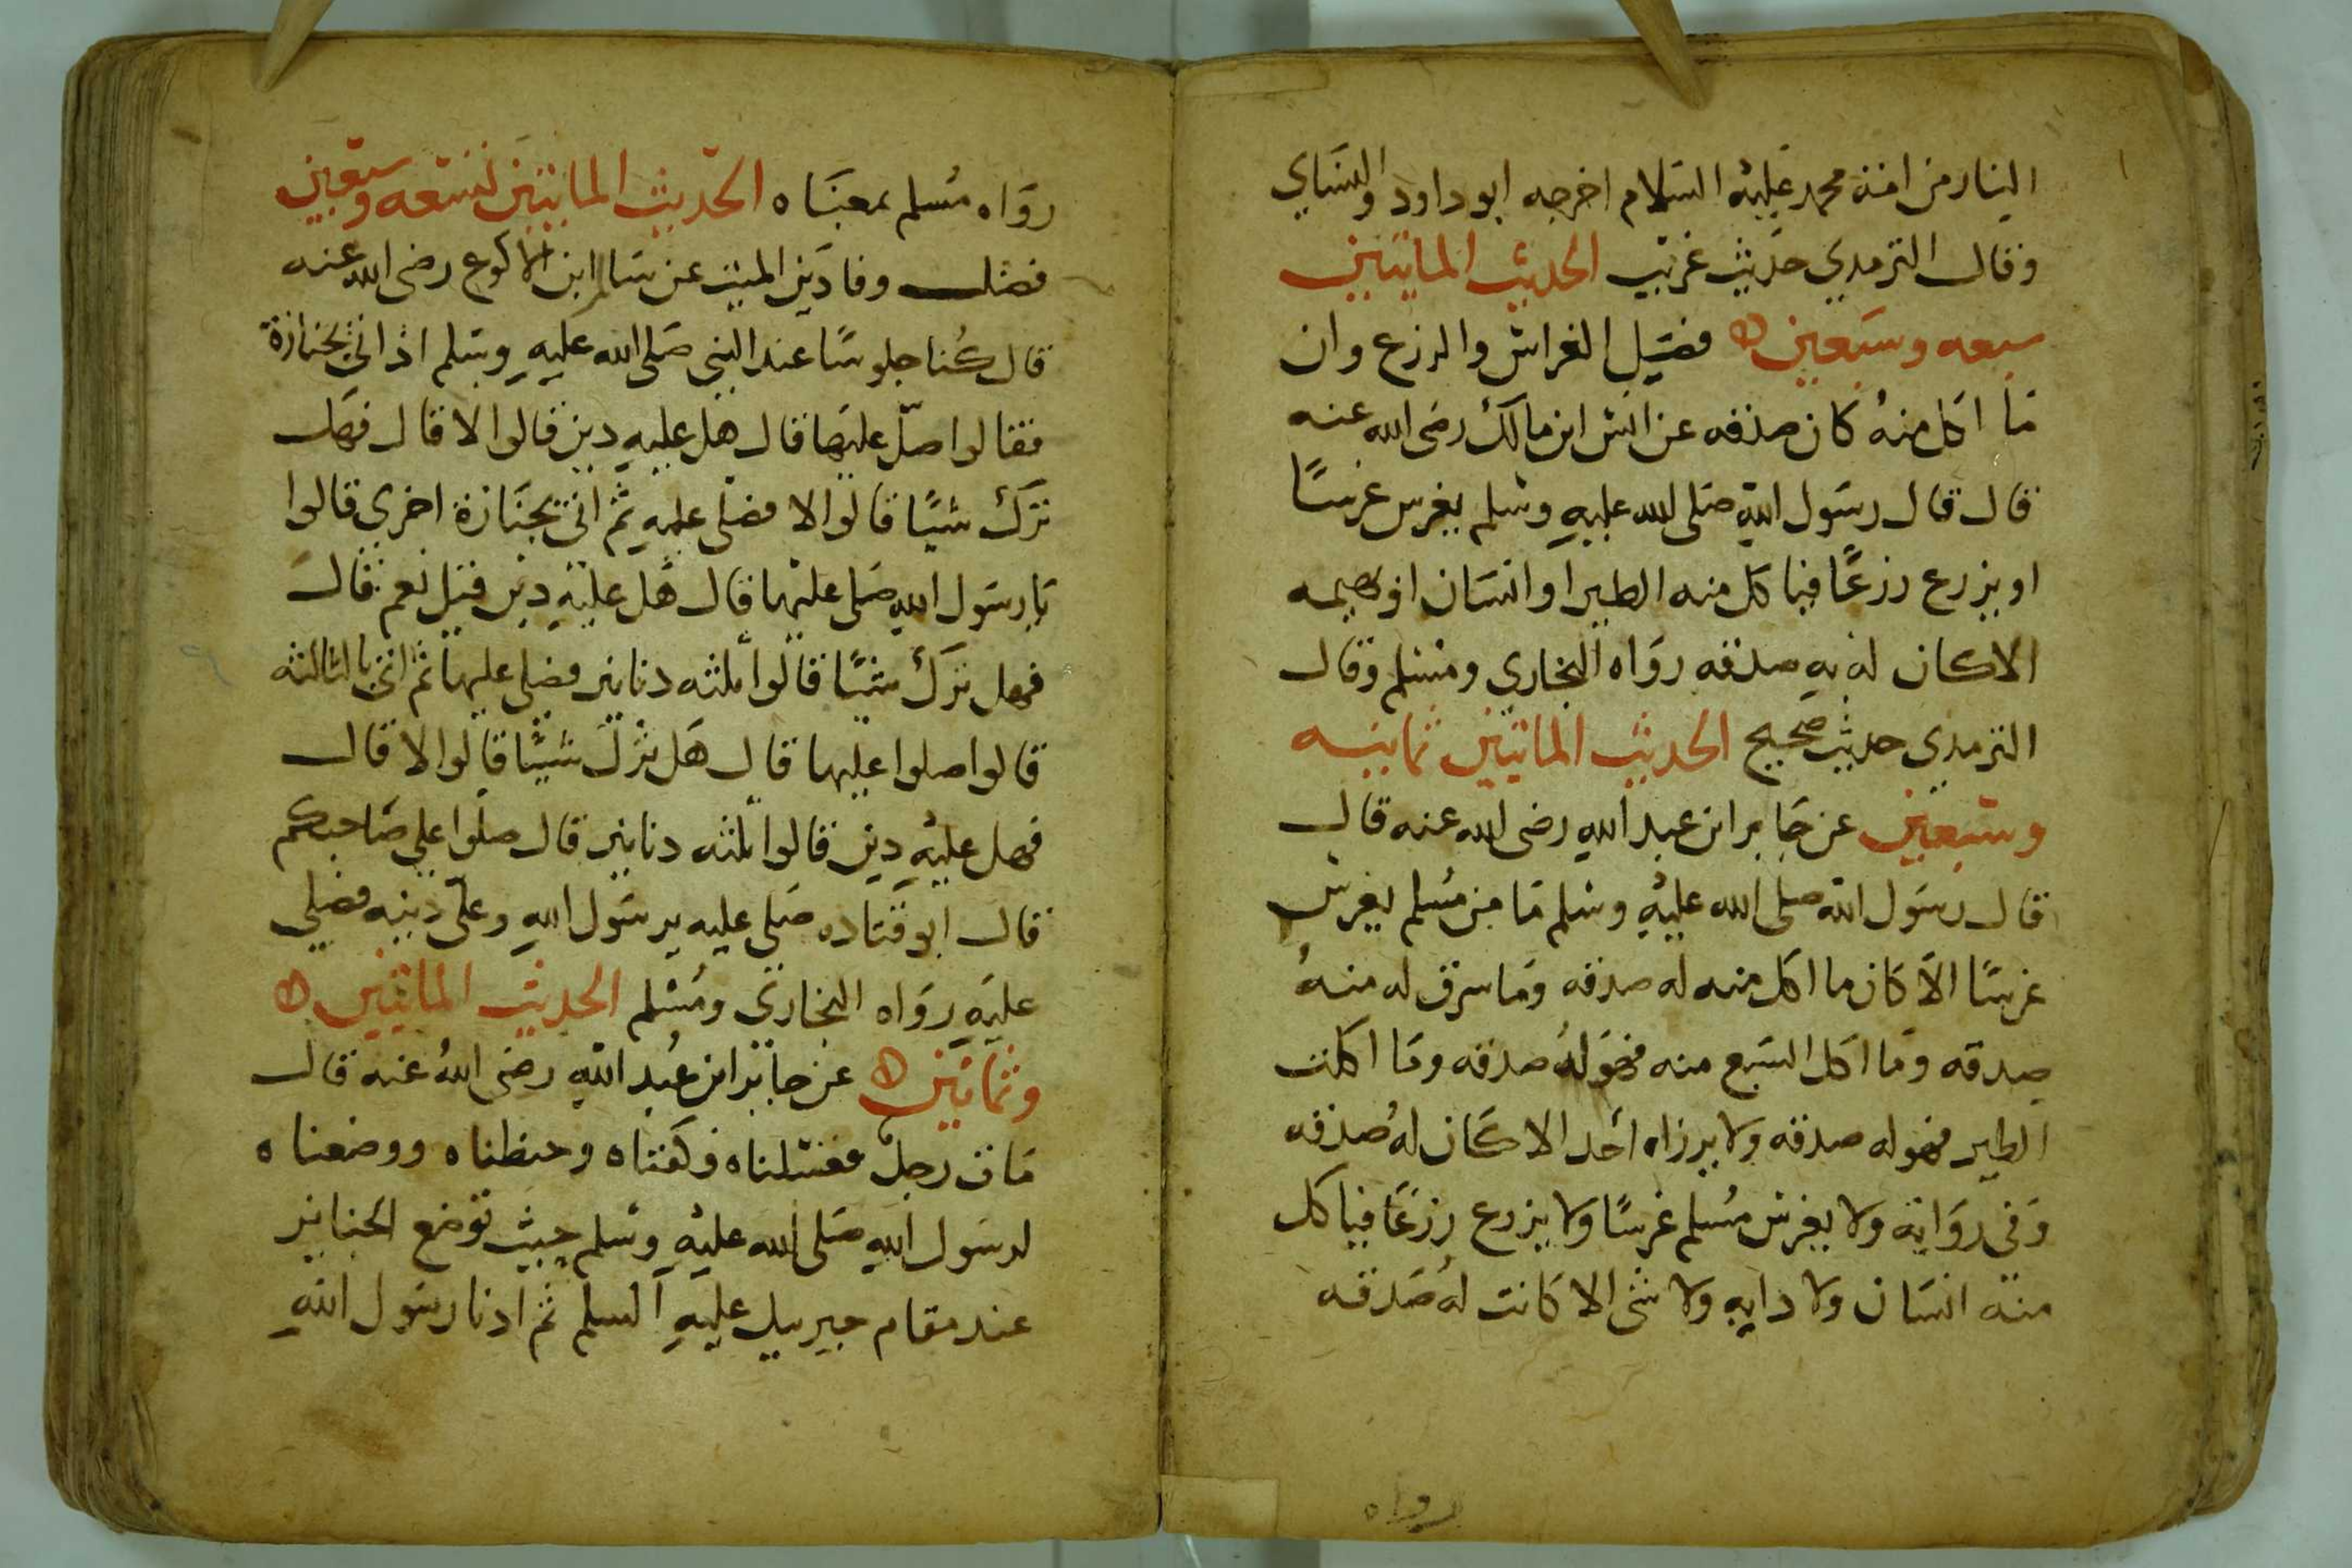 النار من امة محمد عليه السلام اخرجه ابو داود والنساي
وقال الترمدي حديث غريب الحديث الماتيين
سبعه وسبعين فضيل الغراس والزرع وان
ما اكل منه كان صدقه عن انس ابن مالك رضى الله عنه
قال قال رسول الله صلى الله عليه وسلم يغرس غرسًا
او يزرع زرعًا فياكل منه الطير او انسان او بهيمه
الاكان له به صدقه رواه البخاري ومسلم وقال
الترمدي حديث صحيح الحديث الماتيين ثمانيه
وسبعين عن جابر ابن عبد الله رضى الله عنه قال
قال رسول الله صلى الله عليه وسلم ما من مسلم يغرس
غرسًا الا كان ما اكل منه له صدقه وما سرق له منه
صدقه وما اكل السبع منه فهو له صدقه وما اكلت
الطير فهو له صدقه ولا يرزاه احد الا كان له صدقه
وفى رواية ولا يغرس مسلم غرسًا ولا يزرع زرعًا فياكل
منه انسان ولا دابه ولا شى الا كانت له صدقه
رواه
رواه مسلم بمعناه الحديث الماتيين تسعه وسبعين
فضل وفا دين الميت عن سالم ابن الاكوع رضى الله عنه
قال كنا جلوسًا عند النبى صلى الله عليه وسلم اذ اتى بجنازة
فقالوا صلّ عليها قال هل عليه دين قالوا لا قال فهل
ترك شيًا قالوا لا فصلى عليه ثم اتى بجنازة اخرى قالوا
يا رسول الله صلى عليها قال هل عليه دين قيل نعم قال
فهل ترك شيًا قالوا ثلثه دنانير فصلى عليها ثم اتى بالثالثه
قالوا صلوا عليها قال هل ترك شيًا قالوا لا قال
فهل عليه دين قالوا ثلثه دنانير قال صلوا على صاحبكم
قال ابو قتاده صلى عليه يرسول الله وعلى دينه فصلى
عليه رواه البخارى ومسلم الحديث الماتيين
وثمانين عن جابر ابن عبد الله رضى الله عنه قال
مات رجل فغسلناه وكفناه وحنطناه ووضعناه
لرسول الله صلى الله عليه وسلم حيث توضع الجنايز
عند مقام جبريل عليه السلم ثم ادنا رسول الله